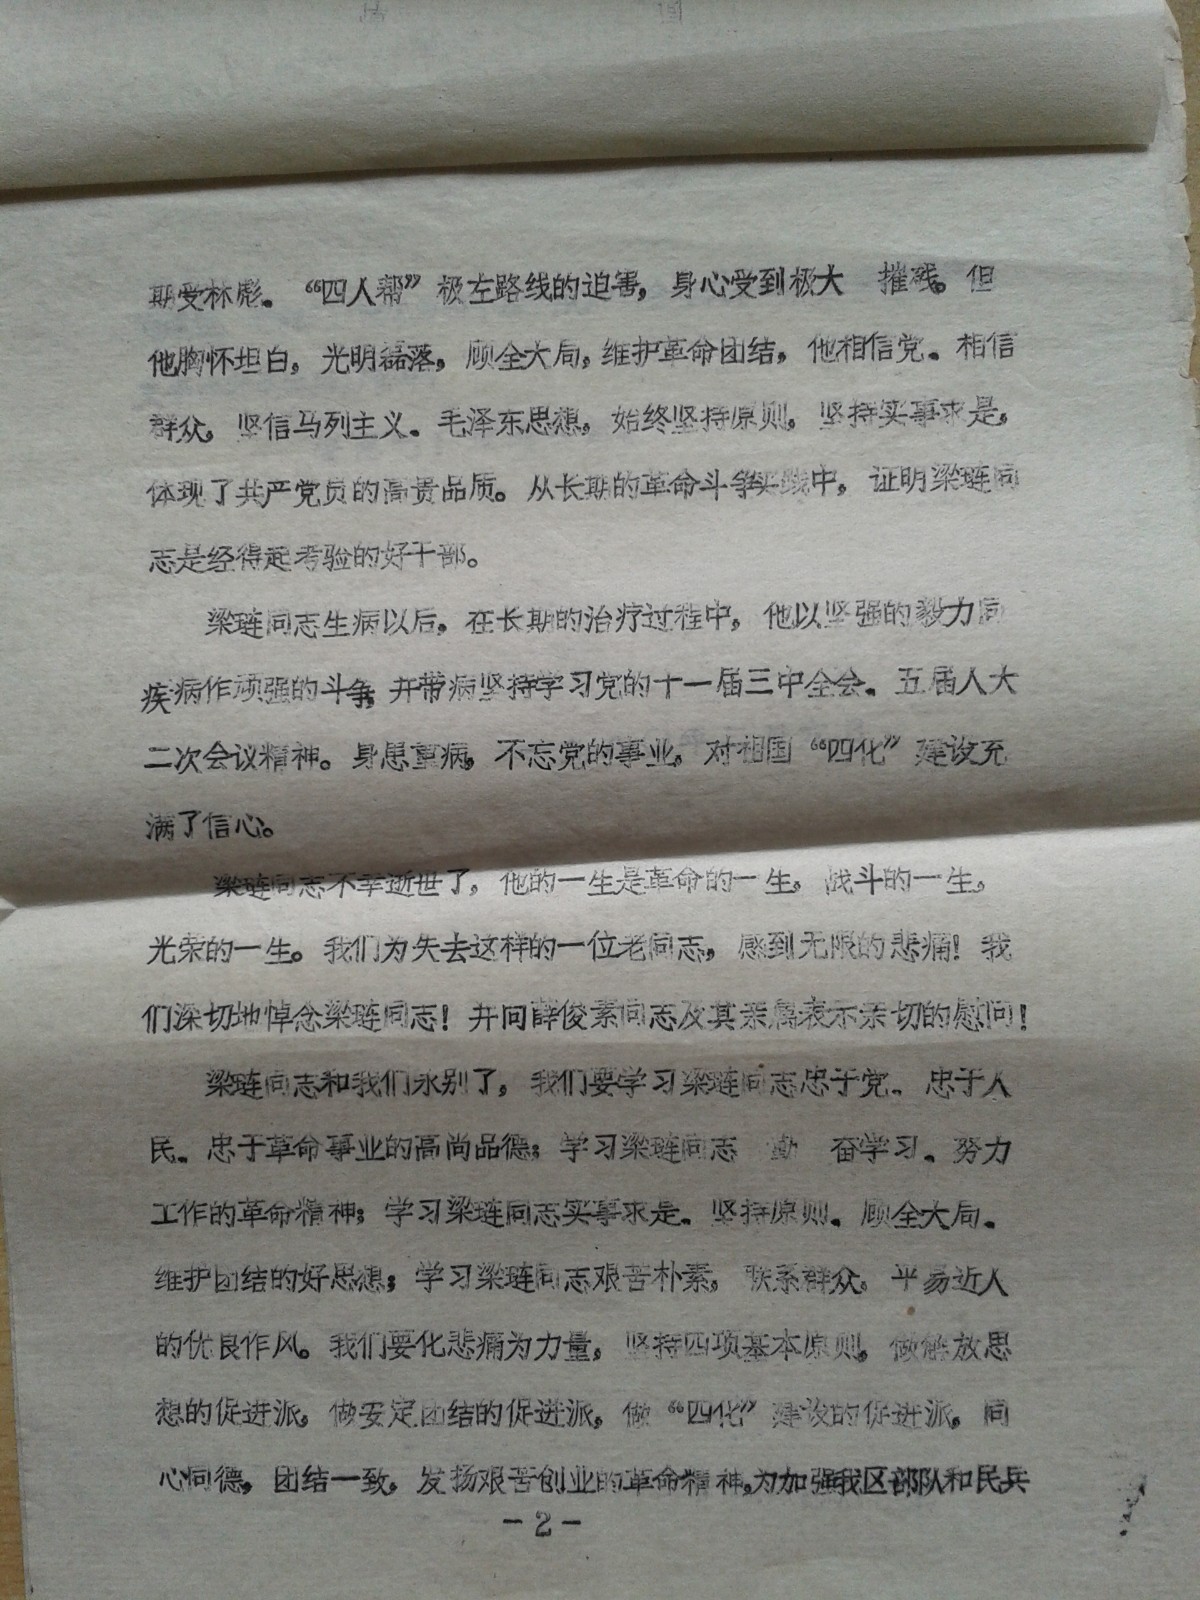 期受林彪。“四人帮”极左路线的迫害，身心受到极大 摧残。但
他胸怀坦白，光明磊落，顾全大局，维护革命团结，他相信党。相信
群众，坚信马列主义。毛泽东思想，始终坚持原则，坚持实事求是，
体现了共产党员的高贵品质。从长期的革命斗争实践中，证明梁琏同
志是经得起考验的好干部。
梁琏同志生病以后，在长期的治疗过程中，他以坚强的毅力同
疾病作顽强的斗争，并带病坚持学习党的十一届三中全会。五届人大
二次会议精神。身患重病，不忘党的事业，对祖国“四化”建设充
满了信心。
梁琏同志不幸逝世了，他的一生是革命的一生，战斗的一生，
光荣的一生。我们为失去这样的一位老同志，感到无限的悲痛！我
们深切地悼念梁琏同志！并向薛俊素同志及其亲属表示亲切的慰问！
梁琏同志和我们永别了，我们要学习梁琏同志忠于党。忠于人
民。忠于革命事业的高尚品德；学习梁琏同志 勤 奋学习。努力
工作的革命精神；学习梁琏同志实事求是。坚持原则。顾全大局。
维护团结的好思想；学习梁琏同志艰苦朴素，联系群众，平易近人
的优良作风。我们要化悲痛为力量，坚持四项基本原则，做解放思
想的促进派，做安定团结的促进派，做“四化”建设的促进派，同
心同德，团结一致，发扬艰苦创业的革命精神，为加强我区部队和民兵
－2－